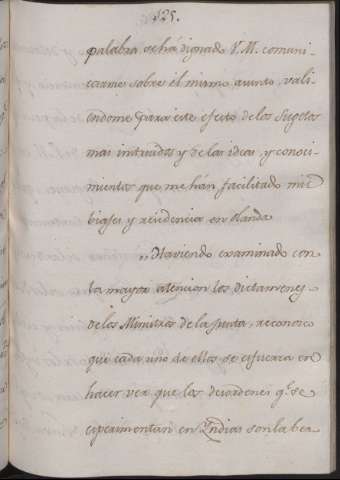 125.
palabra se há dignado V. M. comuni-
carme sobre el mismo asunto, vali-
endome para este efecto de los Sugetos
mas intruidos y de las ideas, y conoci-
mientos que me hán facilitado mis
biajes y residencia en Olanda.
„Haviendo examinado con
la mayor atencion los dictamenes
de los Ministros de la Junta, reconosco
que cada uno de ellos se esfuerza en
hacer ver que los desordenes q.e se
experimentan en Indias son la bea